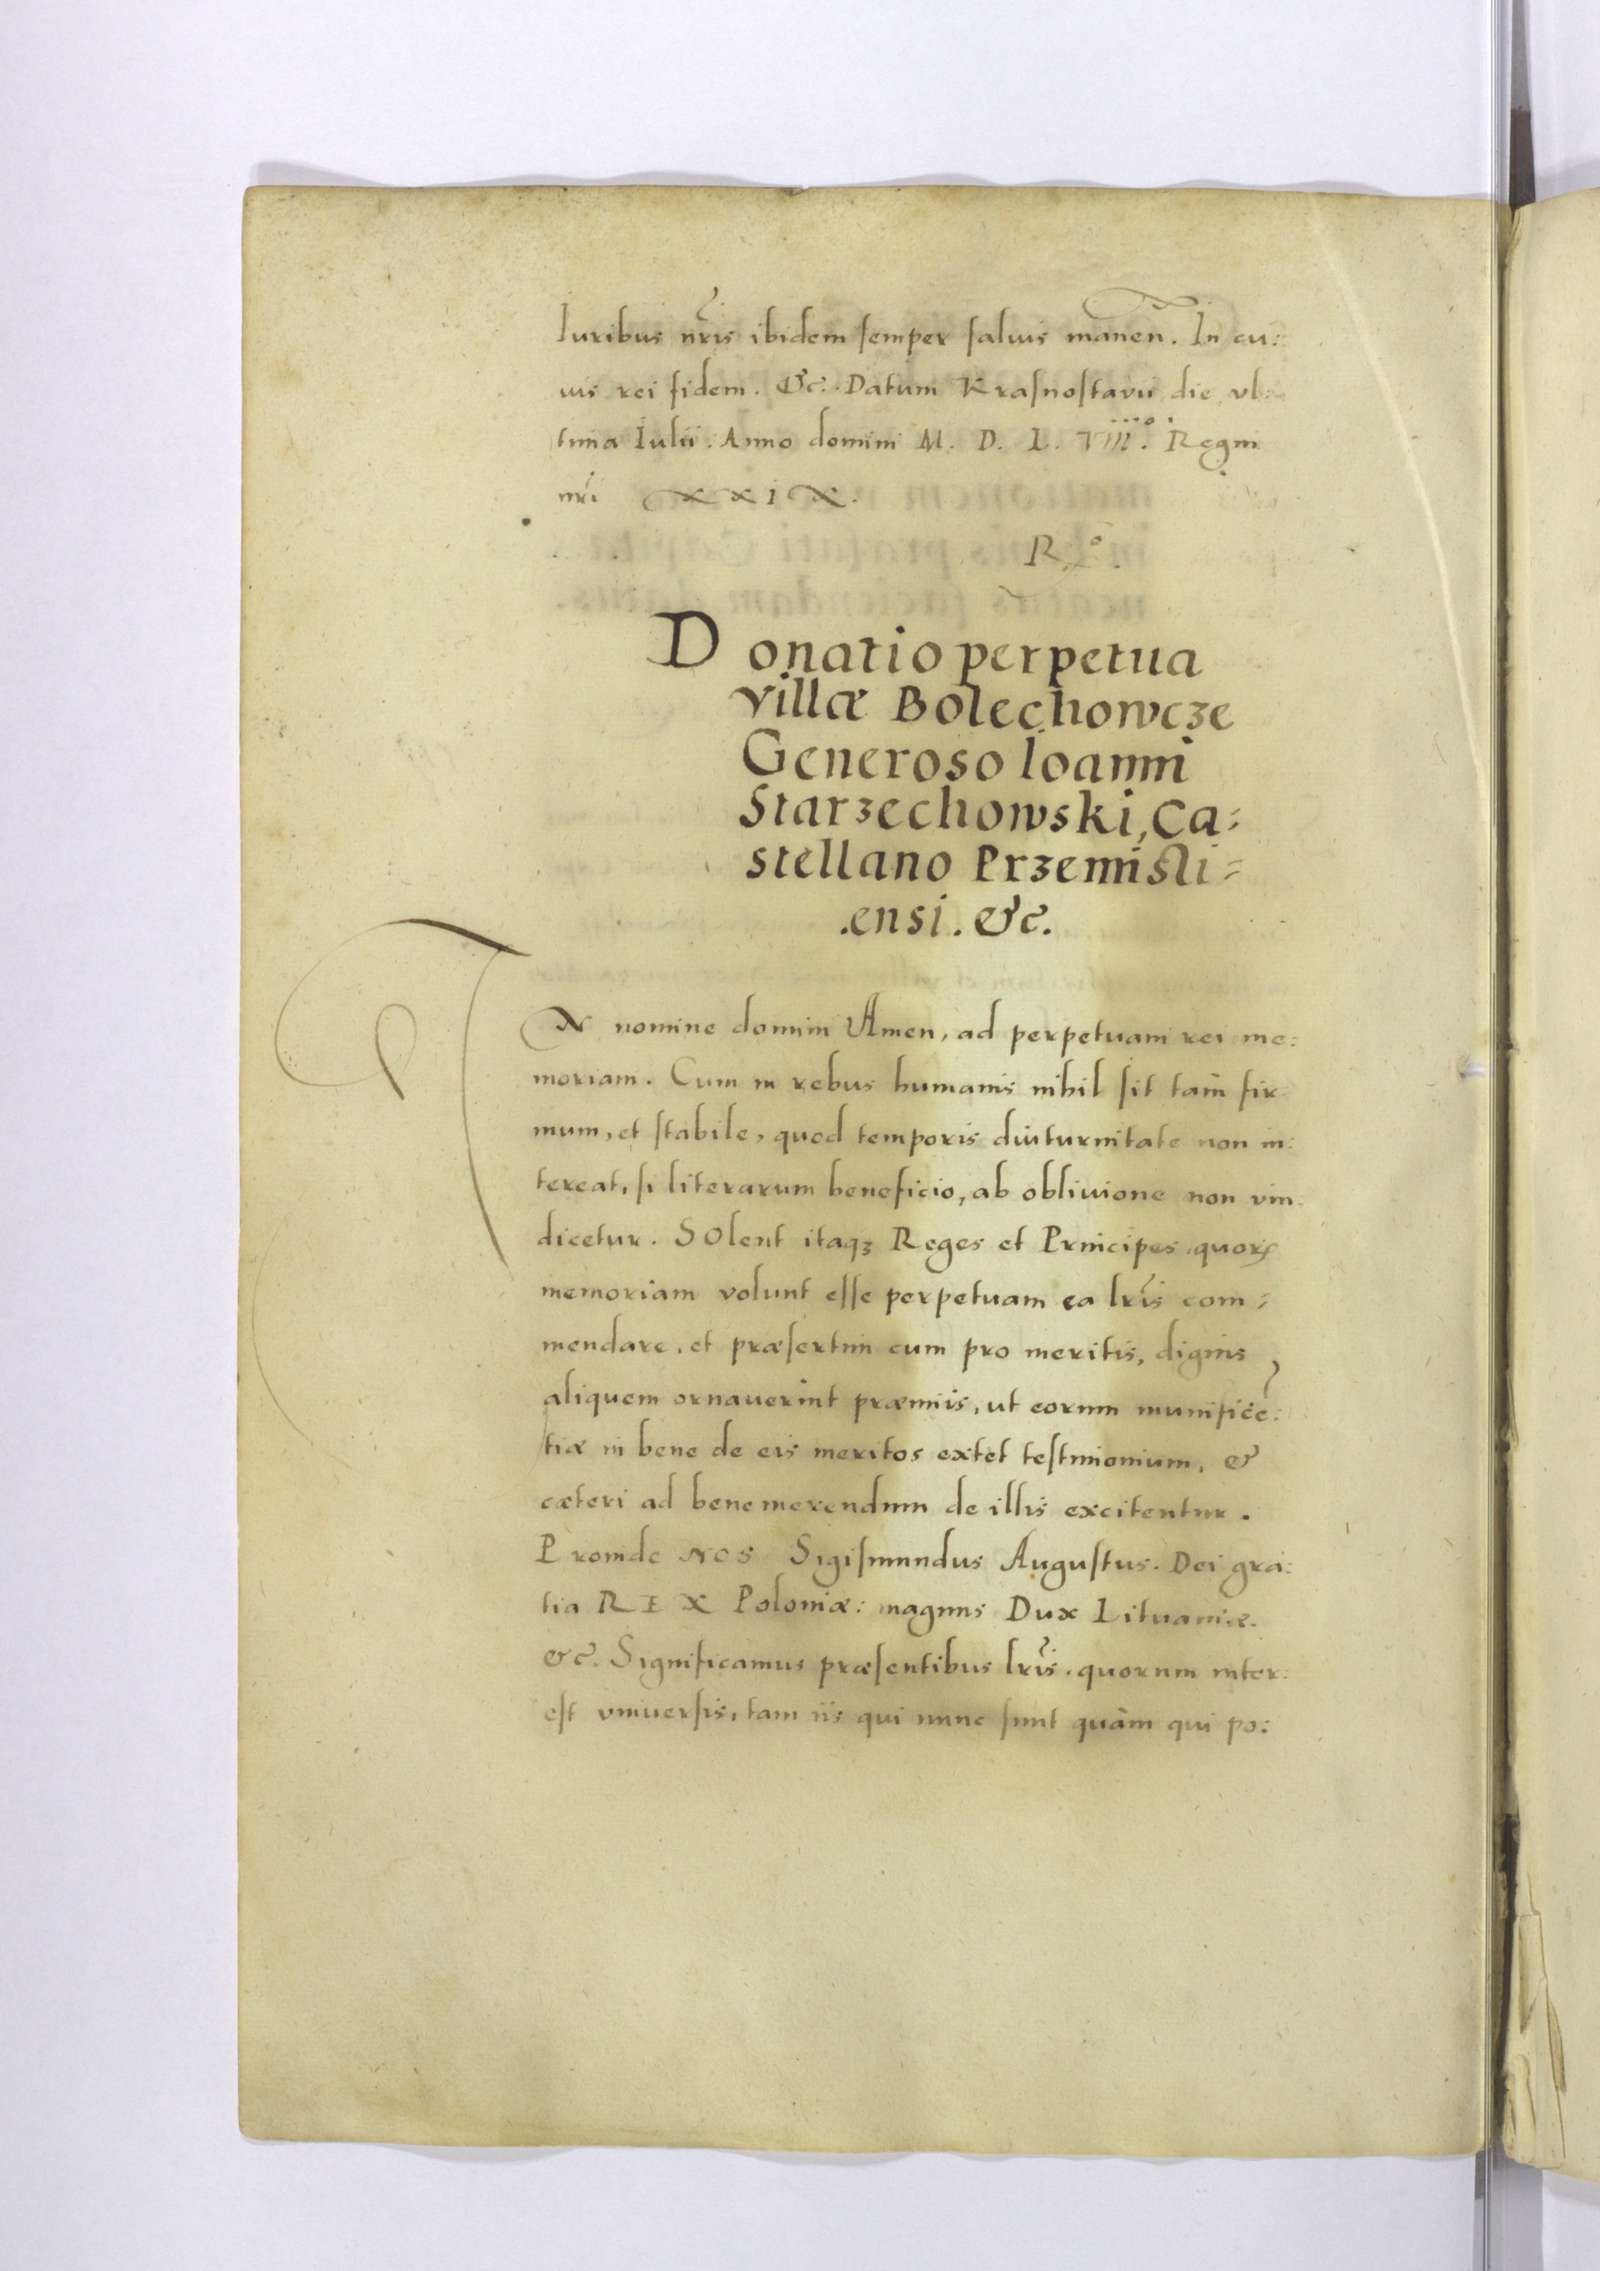 Iuribus nr̃is ibidem ſemper ſaluis manen̄. In cu:
ius rei fidem. &c. Datum Kraſnoſtavii die vl:
tima Iulii. Anno domini M. D. L. VIII.º Regni
nr̃i XXIX.
Donatio perpetua
villæ Bolechowcze
Generoso Ioanni
Starzechowski, Ca:
stellano Przemisli:
.ensi. &c.
IN nomine domini Amen, ad perpetuam rei me:
moriam. Cum in rebus humanis nihil ſit tam̄ fir
mum, et ſtabile, quod temporis diuturnitate non in:
tereat, ſi literarum beneficio, ab obliuione non vin
dicetur. SOlent itaqꝫ Reges et Principes quorꝝ
memoriam volunt eſſe perpetuam ea lr̃is com:
mendare, et præſertim cum pro meritis, dignis
aliquem ornauerint præmiis, ut eorum munificẽ:
tiæ in bene de eis meritos extet teſtimonium, &
cæteri ad bene merendum de illis excitentur.
Proinde NOS Sigiſmundus Auguſtus. Dei gra:
tia REX Poloniæ: magnus Dux Lituaniæ.
&c. Significamus præſentibus lr̃is. quorum inter:
eſt vniuerſis, tam iis qui nunc ſunt quàm qui po: